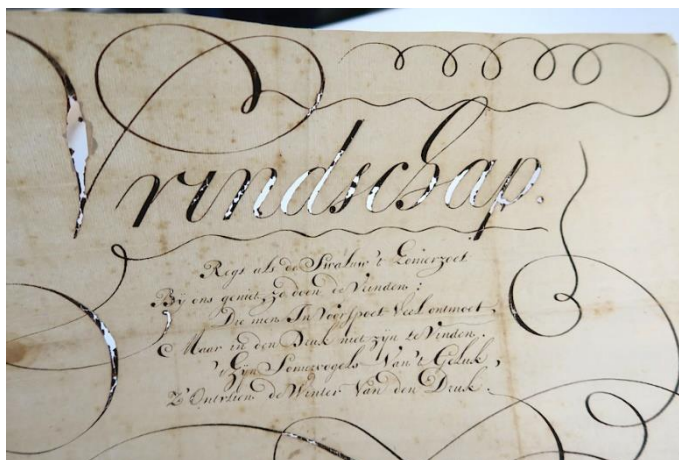 Vrindschap.
Regs als de Swaluw 't Somerzoet
By ons geniet, zo doen de Vrinden:
Die men In Voorspoet Veel ontmoet,
Maar in den Druk niet zyn te Vinden.
't Zyn Somervogels Van 't Geluk,
Z'Ontvlien de Winter Van den Druk.